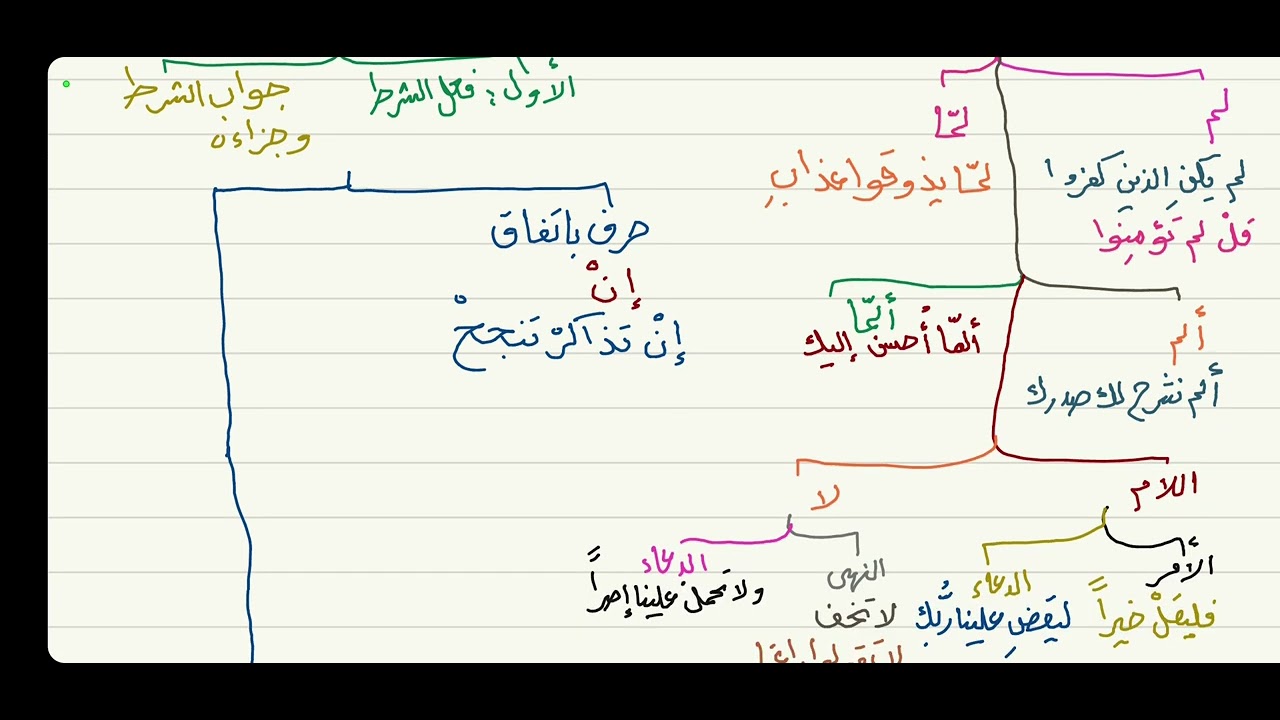 لم
لم يكنِ الذين كفروا
قلْ لم تؤمِنوا
لمّا
لمّا يذوقوا عذابِ
ألم
ألم نشرح لك صدرك
ألمّا
ألمّا أُحسنْ إليك
اللام
الأمر
فليقلْ خيراً
الدعاء
ليقضِ علينا ربُّك
لا
النهى
لا تخف
الدعاء
ولا تحملْ علينا إصراً
الأول: فعل الشرط
جواب الشرط
وجزاءه
حرف باتفاق
إنْ
إنْ تذاكرْ تنجحْ